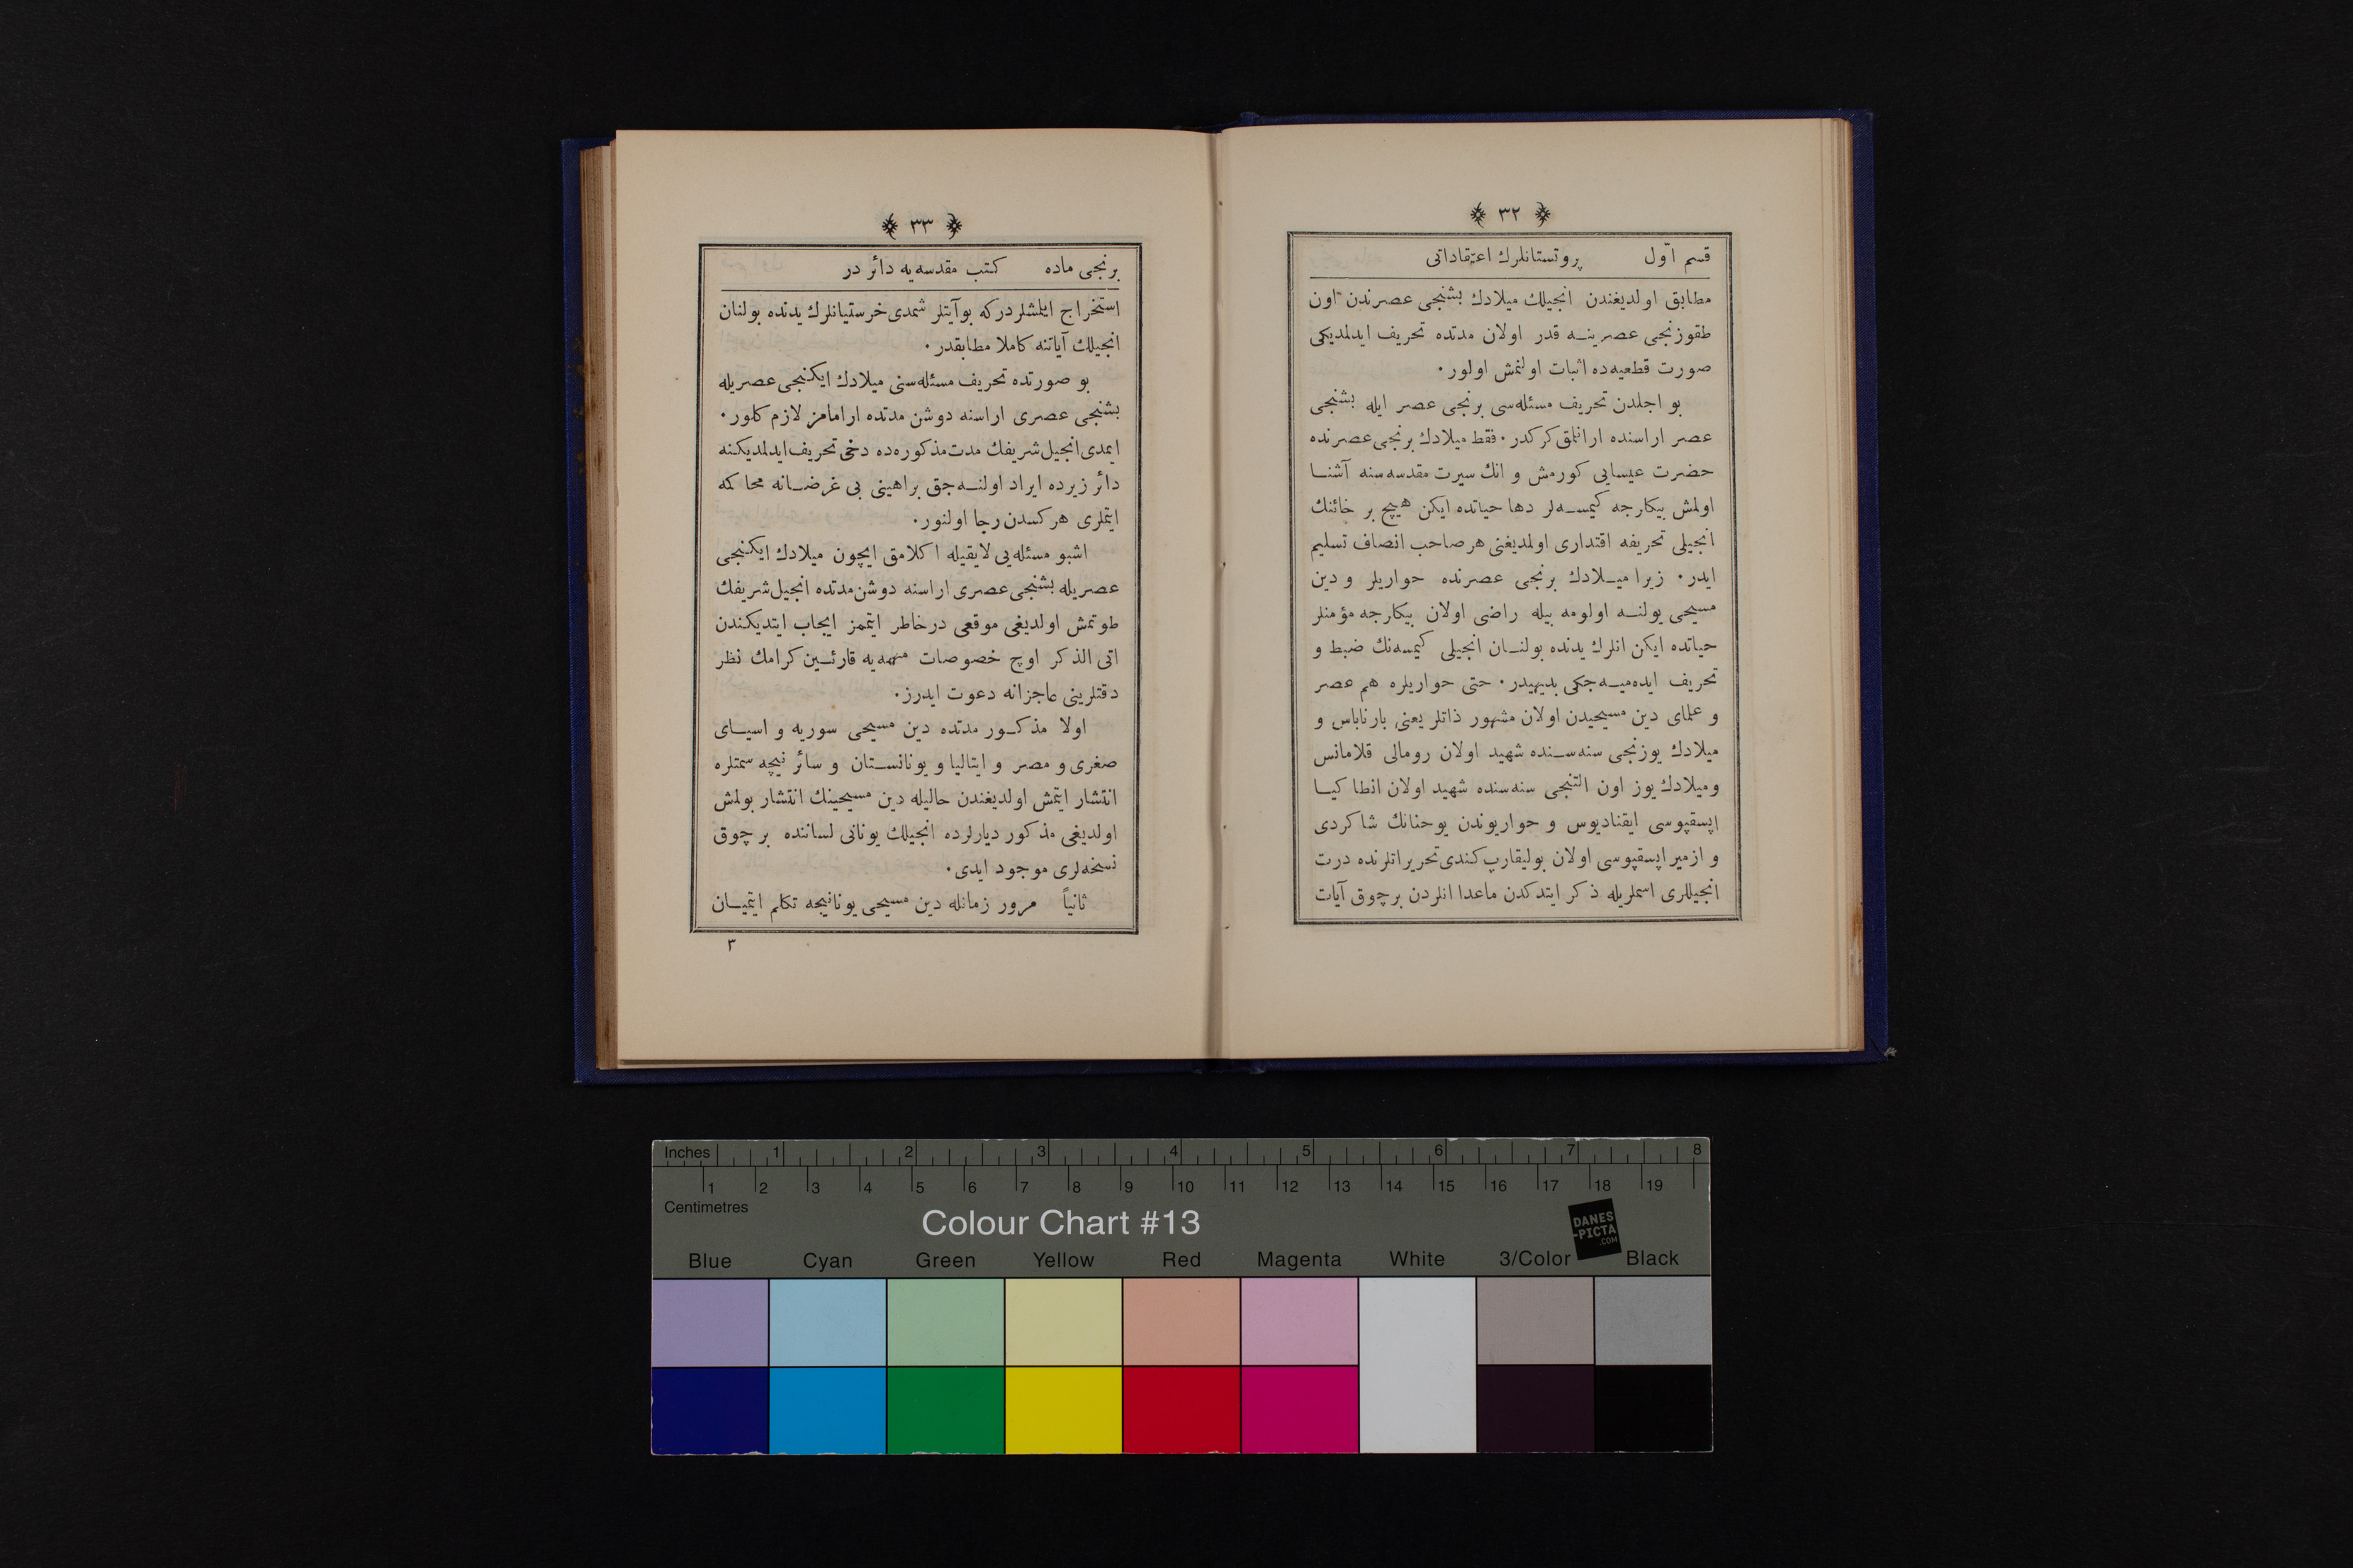 ﴿ ٣٢ ﴾
قسم اوّل پروتستانلرك اعتقاداتی
مطابق اولديغندن انجيلك ميلادك بشنجی عصرندن اون
طقوزنجی عصرينه قدر اولان مدتده تحريف ايدلمديكی
صورت قطعيه‌ده اثبات اولنمش اولور.
بو اجلدن تحريف مسئله‌سی برنجی عصر ايله بشنجی
عصر اراسنده ارانلمق كركدر. فقط ميلادك برنجی عصرنده
حضرت عيسايی كورمش و انك سيرت مقدسه‌سنه آشنا
اولمش بيكارجه كيمسه‌لر دها حياتده ايكن هيچ بر خائنك
انجيلی تحريفه اقتداری اولمديغنی هر صاحب انصاف تسليم
ايدر. زيرا ميلادك برنجی عصرنده حواريلر و دين
مسيحی يولنه اولومه بيله راضی اولان بيكارجه مؤمنلر
حياتده ايكن انلرك يدنده بولنان انجيلی كيمسه‌نك ضبط و
تحريف ايده‌ميه‌جكی بديهيدر. حتی حواريلره هم عصر
و علمای دين مسيحيدن اولان مشهور ذاتلر يعنی بارناباس و
ميلادك يوزنجی سنه‌سنده شهيد اولان رومالی قلامانس
وميلادك يوز اون التنجی سنه‌سنده شهيد اولان انطاكيا
اپسقپوسی ايقناديوس و حواريوندن يوحنانك شاكردی
و ازمير اپسقپوسی اولان بوليقارپ كندی تحريراتلرنده درت
انجيللری اسملريله ذكر ايتدكدن ماعدا انلردن برچوق آيات
﴿ ٣٣ ﴾
برنجی ماده كتب مقدسه‌يه دائر در
استخراج ايلمشلردركه بوآيتلر شمدی خرستيانلرك يدنده بولنان
انجيلك آياتنه كاملا مطابقدر.
بو صورتده تحريف مسئله‌سنی ميلادك ايكنجی عصريله
بشنجی عصری اراسنه دوشن مدتده ارامامز لازم كلور.
ايمدی انجيل شريفك مدت مذكوره‌ده دخی تحريف ايدلمديكنه
دائر زيرده ايراد اولنه‌جق براهينی بی غرضانه محاكمه
ايتملری هركسدن رجا اولنور.
اشبو مسئله‌يی لايقيله اكلامق ايچون ميلادك ايكنجی
عصريله بشنجی عصری اراسنه دوشن مدتده انجيل شريفك
طوتمش اولديغی موقعی درخاطر ايتممز ايجاب ايتديكندن
اتی الذكر اوچ خصوصات مهمه‌يه قارئين كرامك نظر
دقتلرينی عاجزانه دعوت ايدرز.
اولا مذكور مدتده دين مسيحی سوريه و اسيای
صغری و مصر و ايتاليا و يونانستان و سائر نيچه سمتلره
انتشار ايتمش اولديغندن حاليله دين مسيحينك انتشار بولمش
اولديغی مذكور ديارلرده انجيلك يونانی لساننده برچوق
نسخه‌لری موجود ايدی.
ثانياً مرور زمانله دين مسيحی يونانيجه تكلم ايتميان
٣
Inches 1 2 3 4 5 6 7 8
1 2 3 4 5 6 7 8 9 10 11 12 13 14 15 16 17 18 19
Centimetres
Colour Chart #13
DANES
-PICTA
.COM
Blue Cyan Green Yellow Red Magenta White 3/Color Black